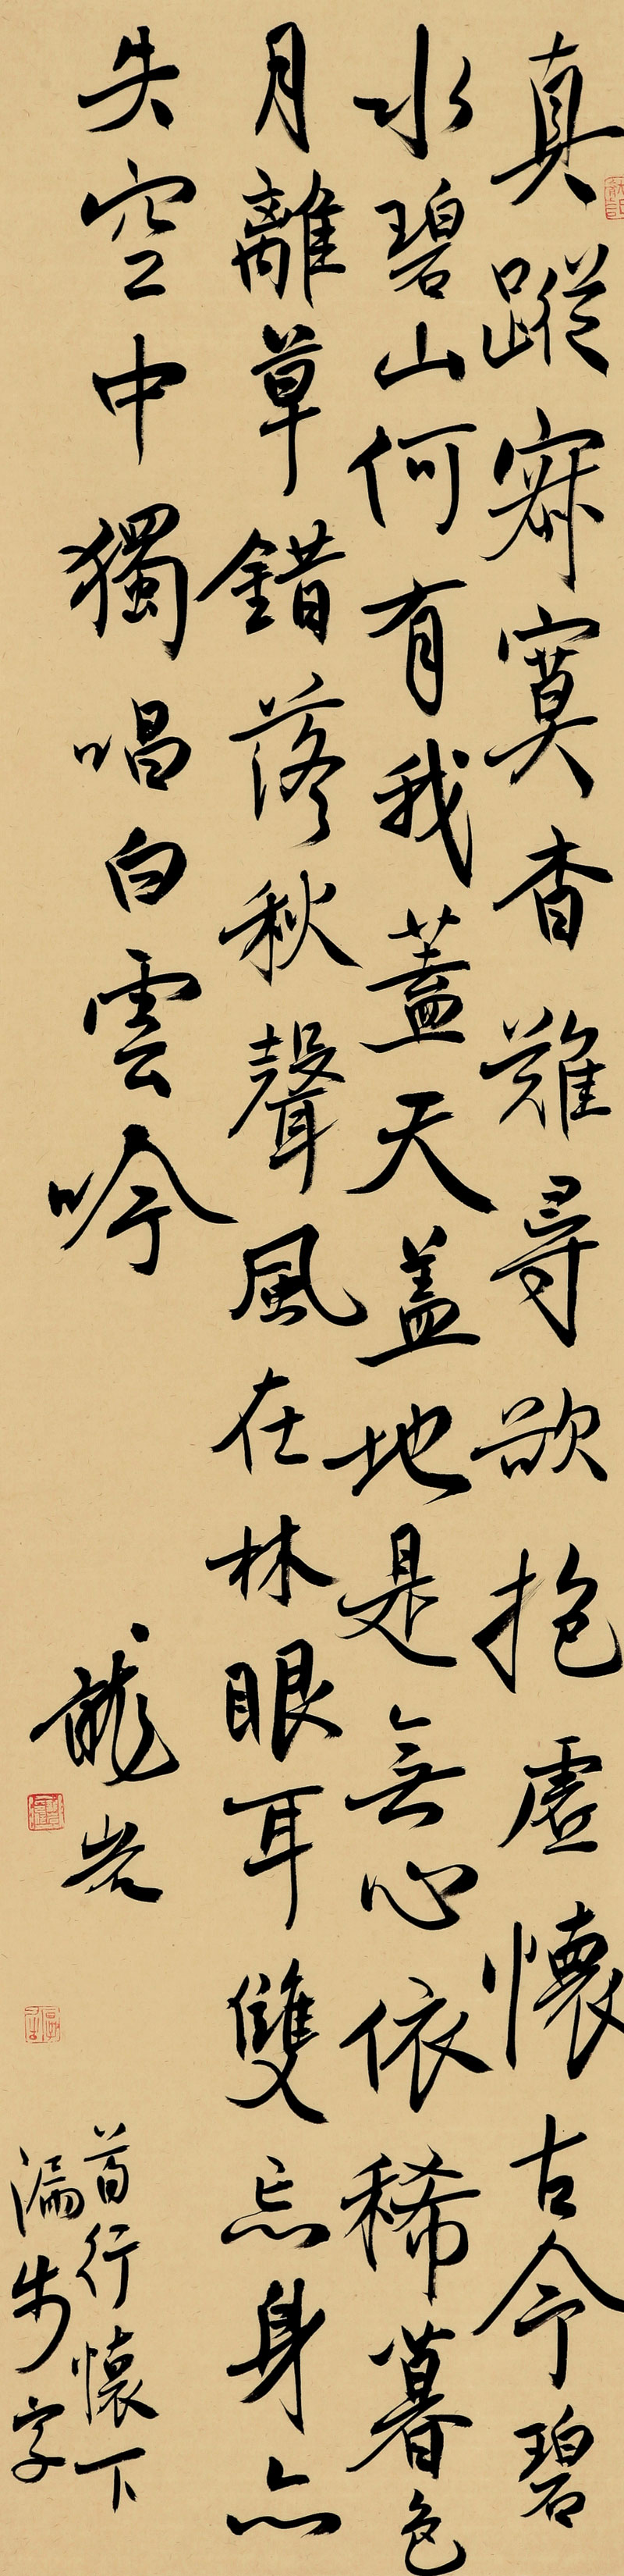 真蹤寂寞杳難尋欲抱虛懷古今碧
水碧山何有我蓋天盖地是無心依稀暮色
月離草錯落秋聲風在林眼耳雙忘身亦
失空中獨唱白雲吟
龍岩
首行懷下
漏步字